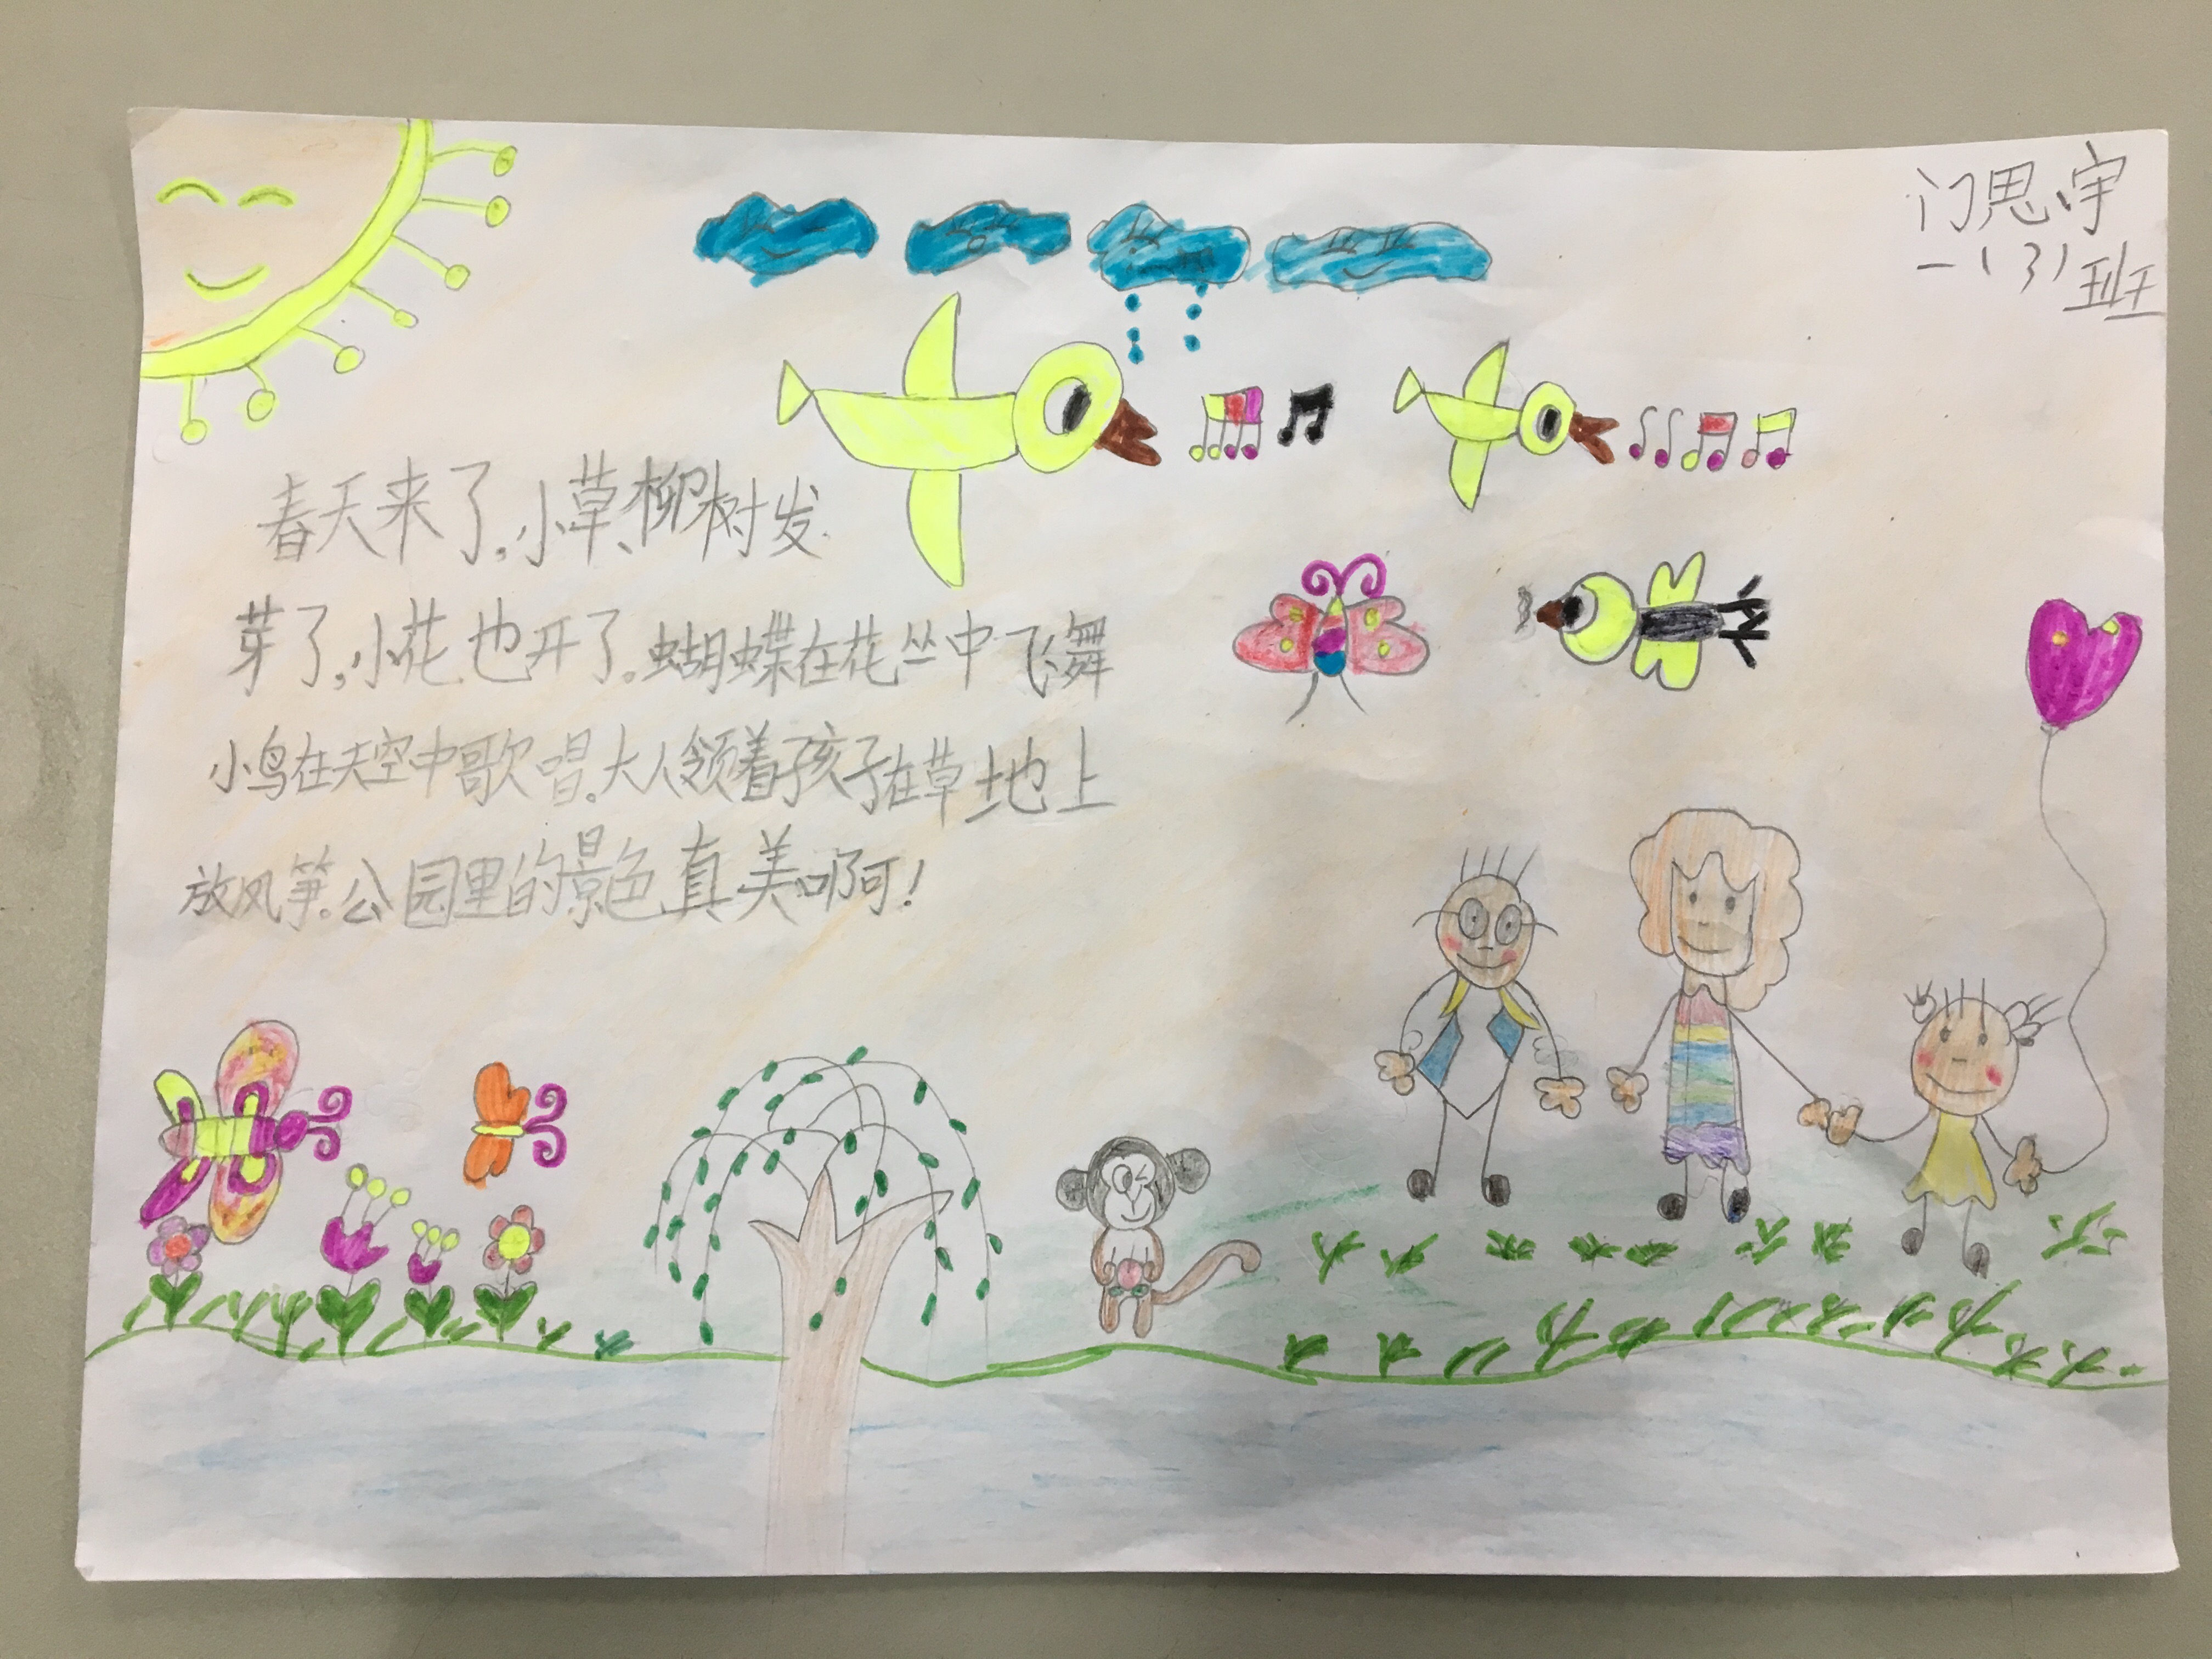 门思宇
一(3)班
春天来了。小草、柳树发
芽了,小花也开了。蝴蝶在花丛中飞舞
小鸟在天空中歌唱。大人领着孩子在草地上
放风筝。公园里的景色真美啊!